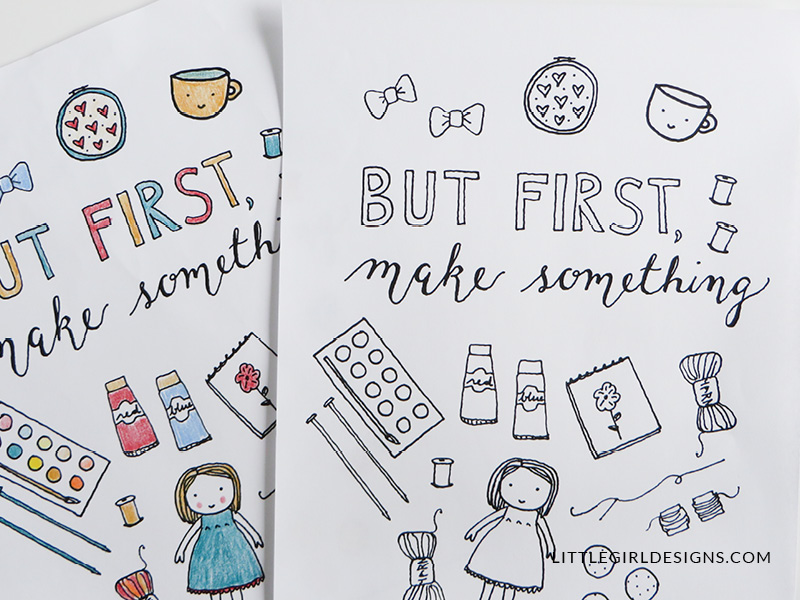 UT FIRST,
make someth
red
blue
BUT FIRST,
make something
red
blue
YARN
LITTLEGIRLDESIGNS.COM